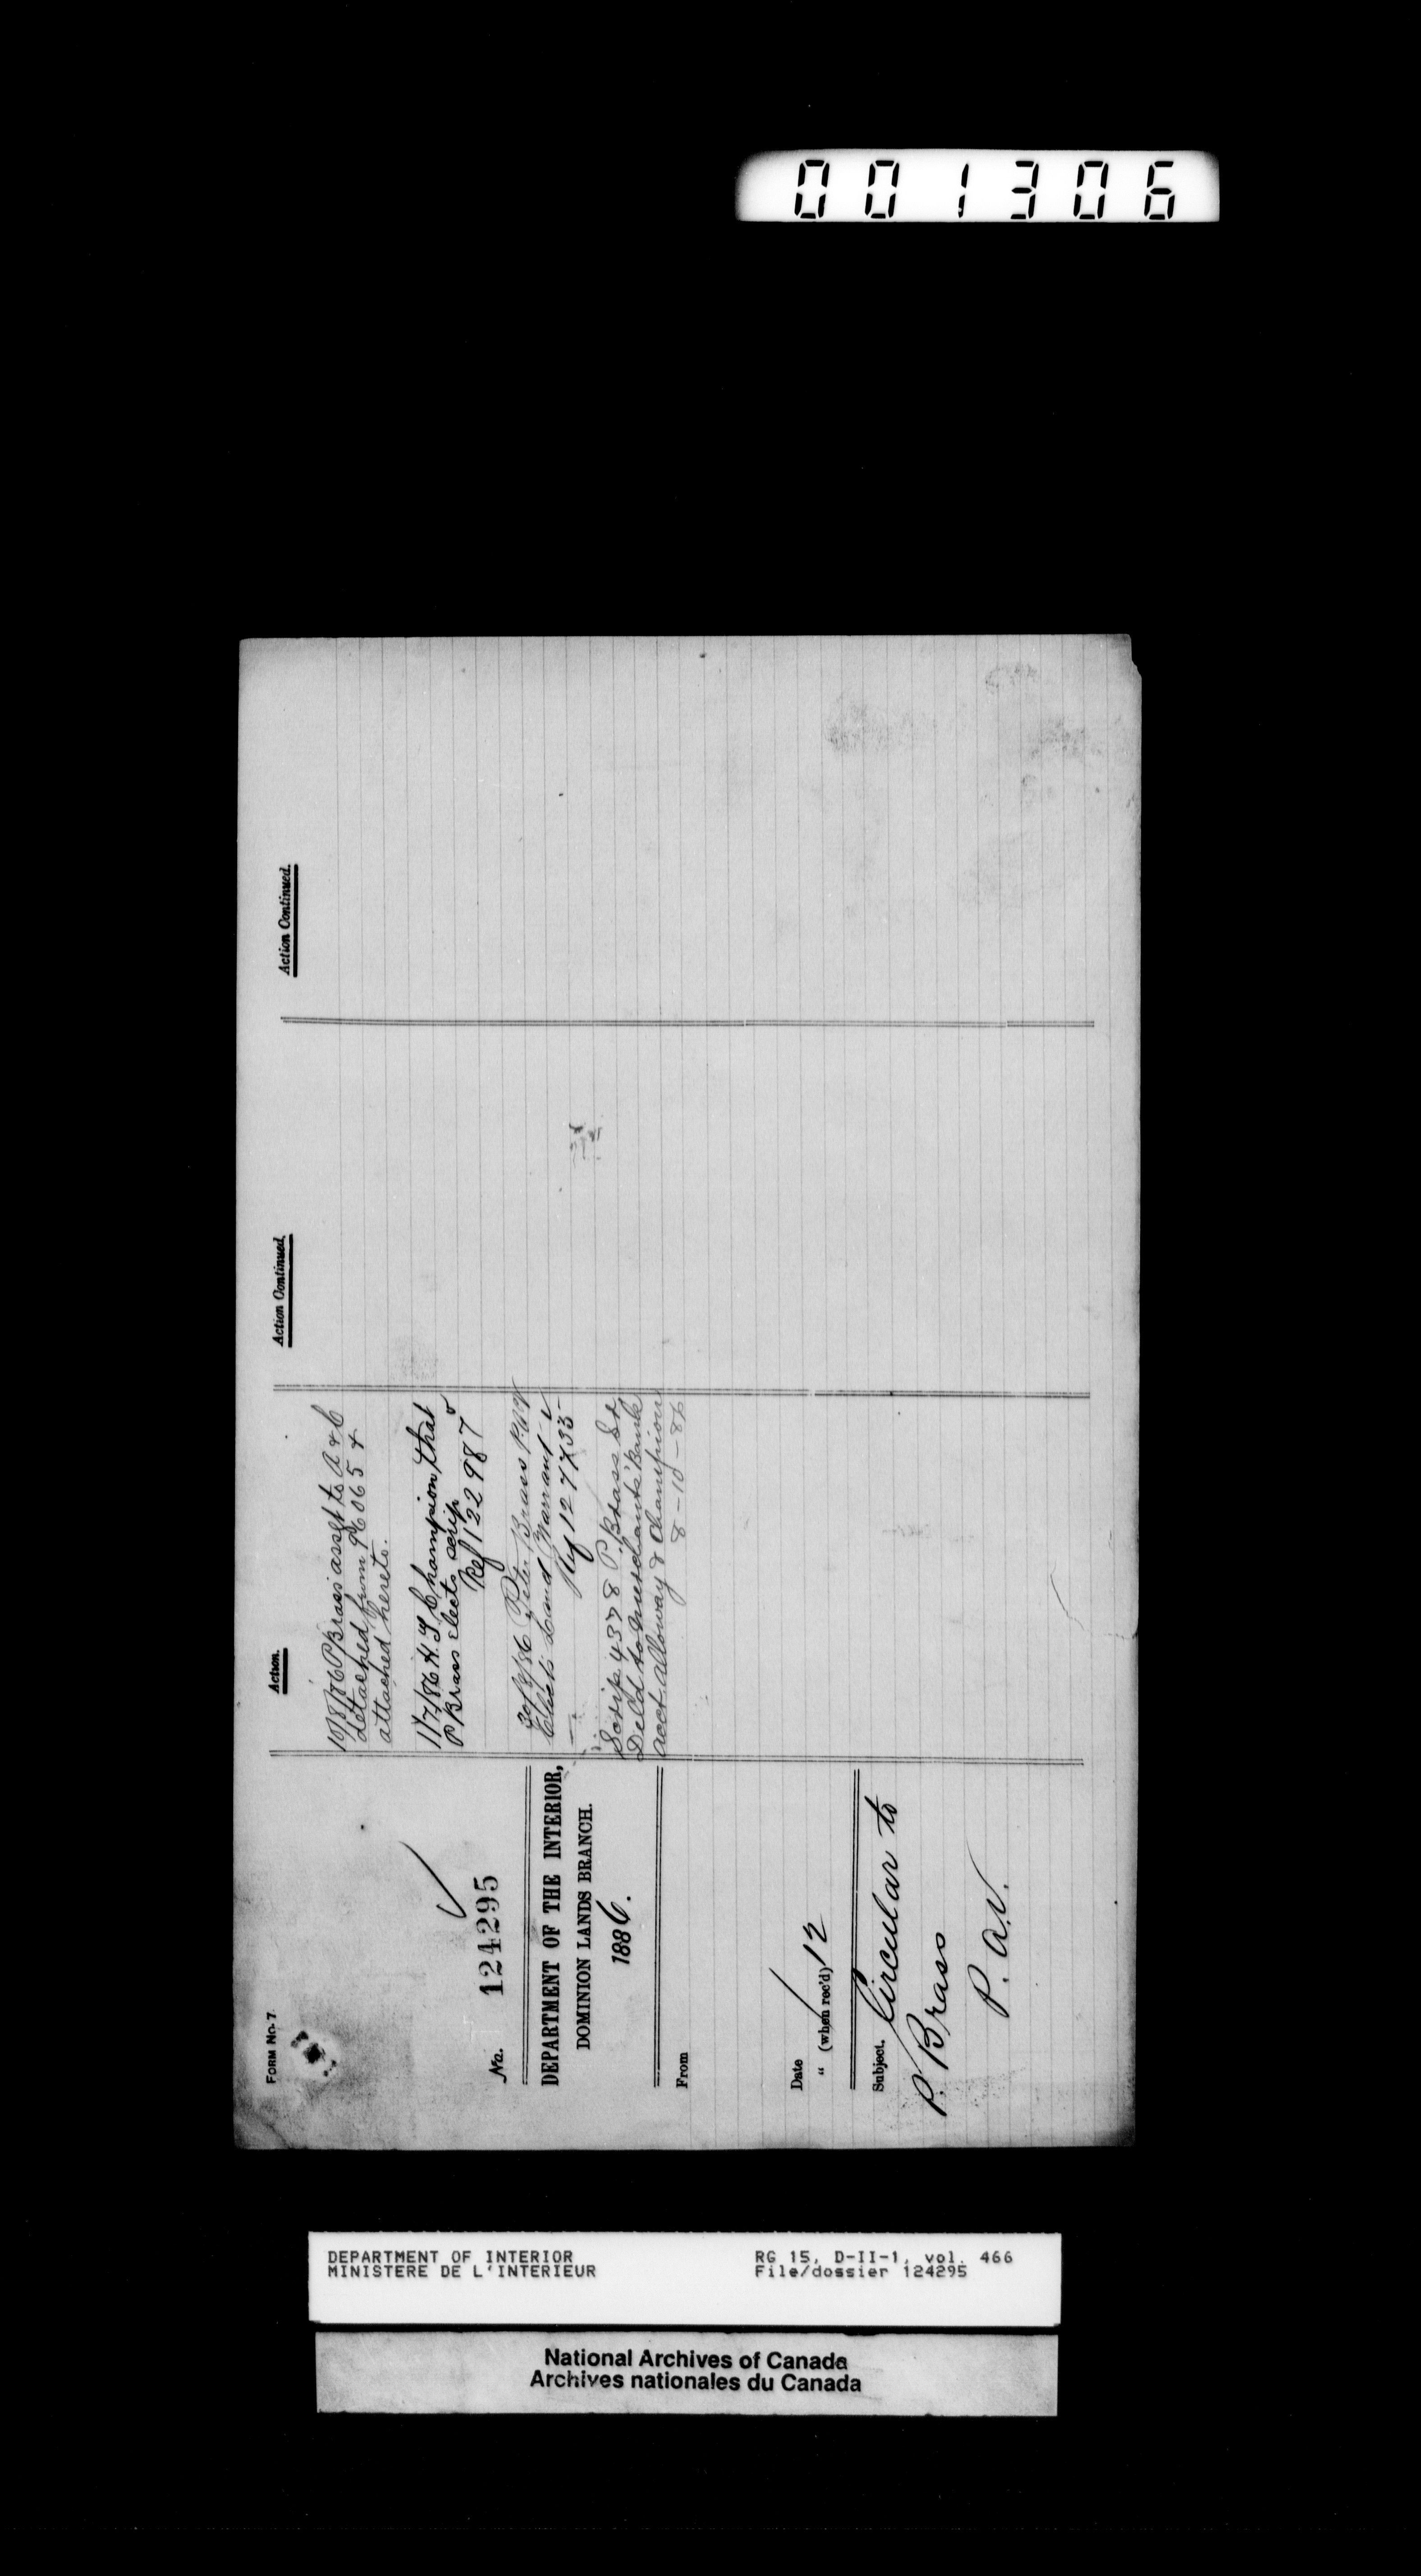 001306
FORM No. 7
No. 124295
DEPARTMENT OF THE INTERIOR,
DOMINION LANDS BRANCH.
1886.
From
Date
" (when rec'd) 12
Subject. Circular to
P. Brass
P. A. V.
Action.
10/8/86 P Brass' asst to A & C
detached from 96065 &
attached hereto.
1/7/86 H. J. Champion, that
P Brass elects scrip
Ref 122987
30/8/86 Peter Brass
Elects Land Warrant
Scrip 4378 P. Brass Sr
Deld to Merchants' Bank
acct Alloway & Champion
8-10-86
Action Continued.
Action Continued.
DEPARTMENT OF INTERIOR
MINISTERE DE L'INTERIEUR
RG 15, D-II-1, vol. 466
File/dossier 124295
National Archives of Canada
Archives nationales du Canada